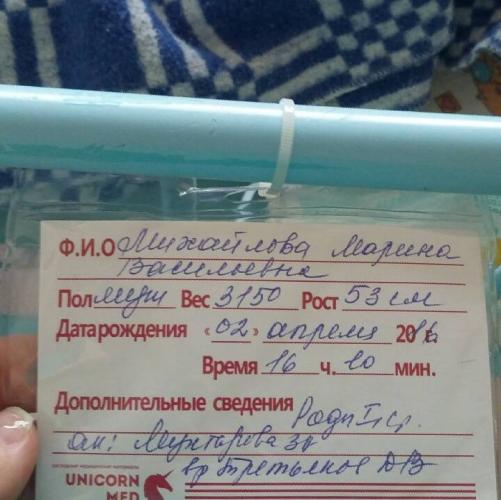 Ф.И.О Михайлова Марина
Васильевна
Пол муж Вес 3150 Рост 53 см
Дата рождения «02» апреля 2016
Время 16 ч. 10 мин.
Дополнительные сведения Роды I ср.
ак: Мухтарова
вр Третьяков ДВ
UNICORN
MED